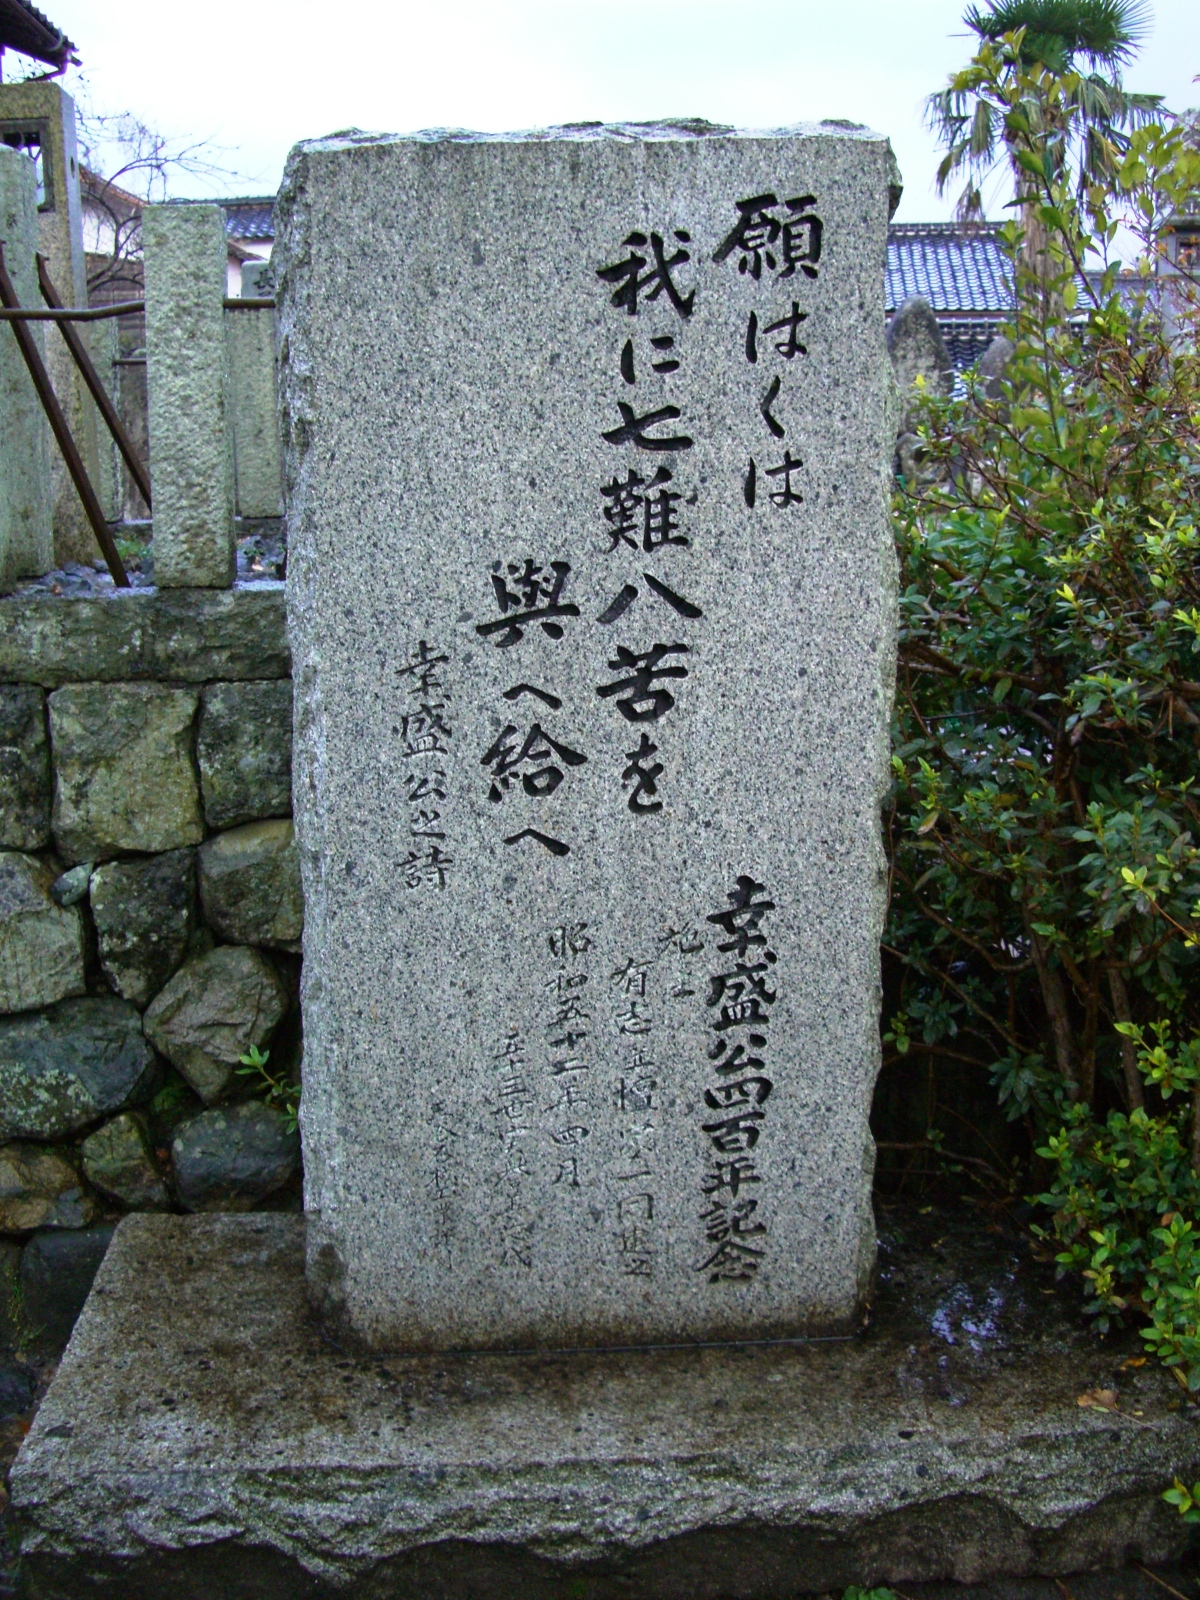 願はくは
我に七難八苦を
與へ給へ
幸盛公之詩
幸盛公四百年記念
地主
有志 一同建之
昭和五十二年四月
五十三世